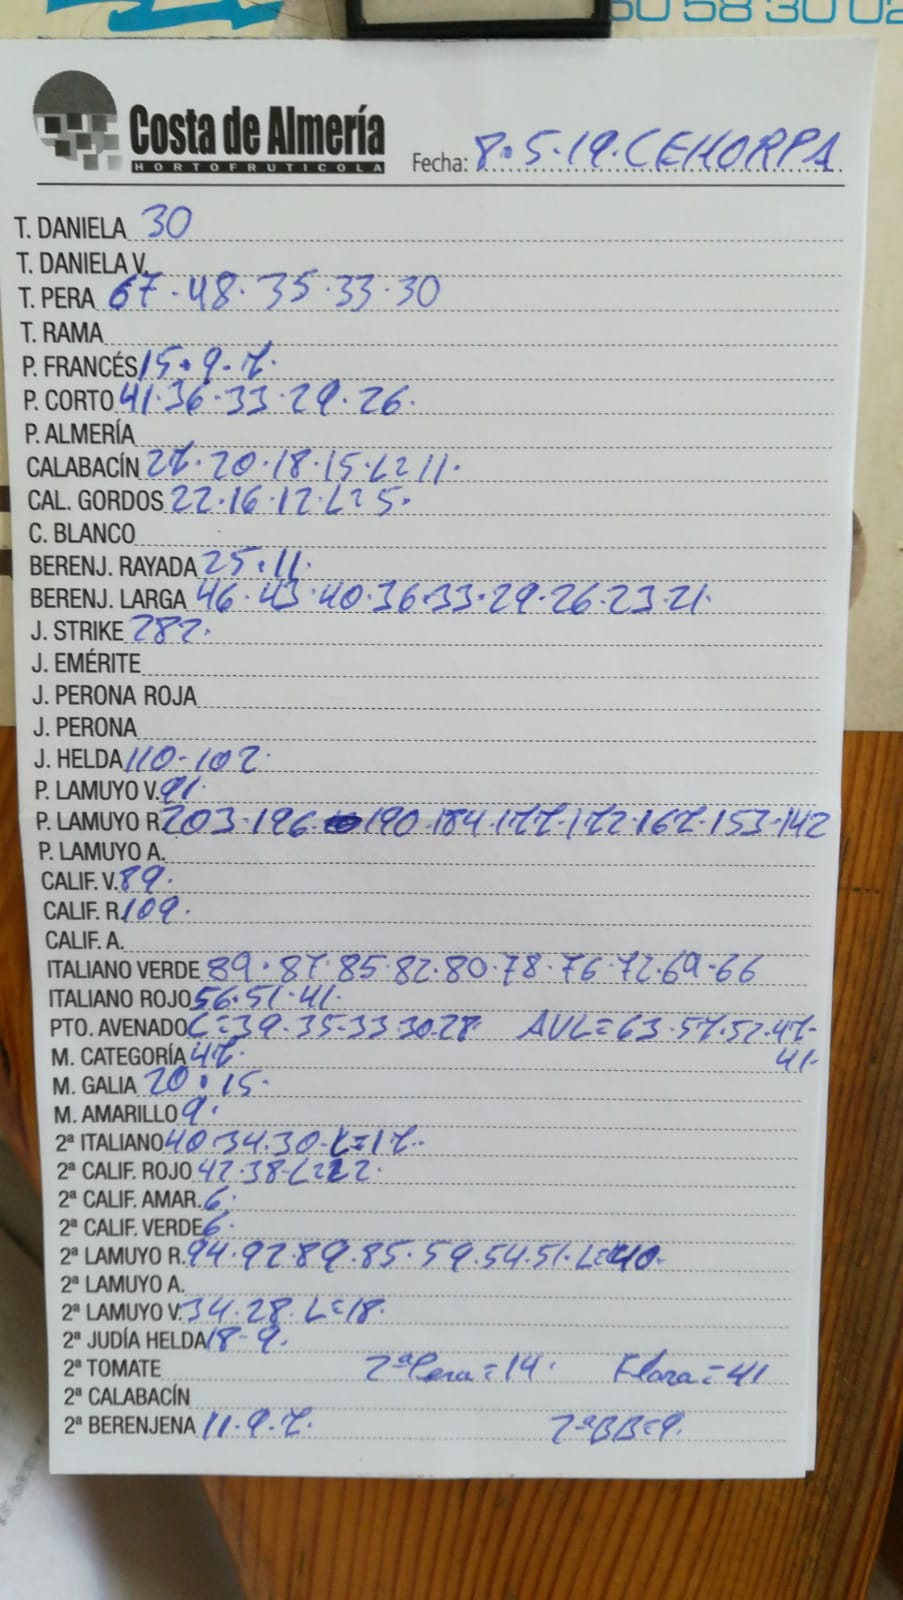 50 58 30 02
Costa de Almería
HORTOFRUTICOLA
Fecha: 8.5.19.CEHORPA
T. DANIELA 30
T. DANIELA V.
T. PERA 67.48.35.33.30
T. RAMA
P. FRANCÉS 15.9.7.
P. CORTO 41.36.33.29.26.
P. ALMERÍA
CALABACÍN 27.20.18.15.L=11.
CAL. GORDOS 22.16.12.L=5.
C. BLANCO
BERENJ. RAYADA 25.11.
BERENJ. LARGA 46.43.40.36.33.29.26.23.21.
J. STRIKE 282.
J. EMÉRITE
J. PERONA ROJA
J. PERONA
J. HELDA 110-102.
P. LAMUYO V. 91.
P. LAMUYO R. 203.196.190.184.177.172.167.153.142
P. LAMUYO A.
CALIF. V. 89.
CALIF. R. 109.
CALIF. A.
ITALIANO VERDE 89.87.85.82.80.78.76.72.69.66
ITALIANO ROJO 56.51.41.
PTO. AVENADO C=39.35.33.30.28. AVL=63.57.52.47.
41.
M. CATEGORÍA 47.
M. GALIA 20.15.
M. AMARILLO 9.
2ª ITALIANO 40.34.30.L=17.
2ª CALIF. ROJO 42.38.L=22
2ª CALIF. AMAR. 6.
2ª CALIF. VERDE 6.
2ª LAMUYO R. 94.92.89.85.59.54.51.L=40.
2ª LAMUYO A.
2ª LAMUYO V. 34.28.L=18.
2ª JUDÍA HELDA 18-9.
2ª TOMATE 2ªPera=14. Flora=41
2ª CALABACÍN
2ª BERENJENA 11.9.7. 2ªBB=9.